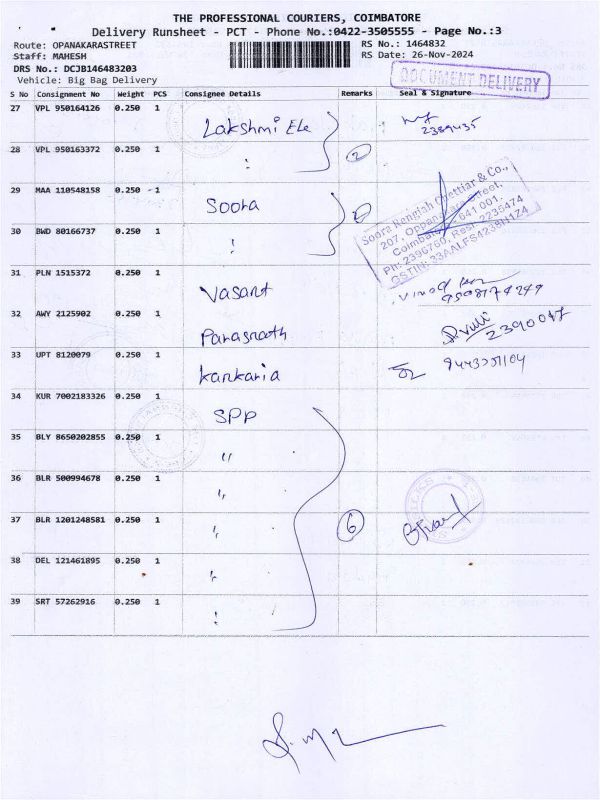 THE PROFESSIONAL COURIERS, COIMBATORE
Delivery Runsheet - PCT - Phone No.:0422-3505555 - Page No.:3
Route: OPANAKARASTREET RS No.: 1464832
Staff: MAHESH RS Date: 26-Nov-2024
DRS No.: DCJB146483203
Vehicle: Big Bag Delivery
DOCUMENT DELIVERY
S No Consignment No Weight PCS Consignee Details Remarks Seal & Signature
27 VPL 950164126 0.250 1 Lakshmi Ele 2389435
28 VPL 950163372 0.250 1 " 2
29 MAA 110548158 0.250 1 Soora
30 BWD 80166737 0.250 1 "
Soora Rengiah Chettiar & Co.,
207, Oppanakara Street,
Coimbatore 641 001.
Ph: 2396760, Resi: 2235474
GSTIN: 33AALFS4238H1Z4
31 PLN 1515372 0.250 1 Vasant
32 AWY 2125902 0.250 1 Parasnath
33 UPT 8120079 0.250 1 Kankaria
34 KUR 7002183326 0.250 1 SPP
35 BLY 8650202855 0.250 1 "
36 BLR 500994678 0.250 1 "
37 BLR 1201248581 0.250 1 " 6
38 DEL 121461895 0.250 1 "
39 SRT 57262916 0.250 1 "